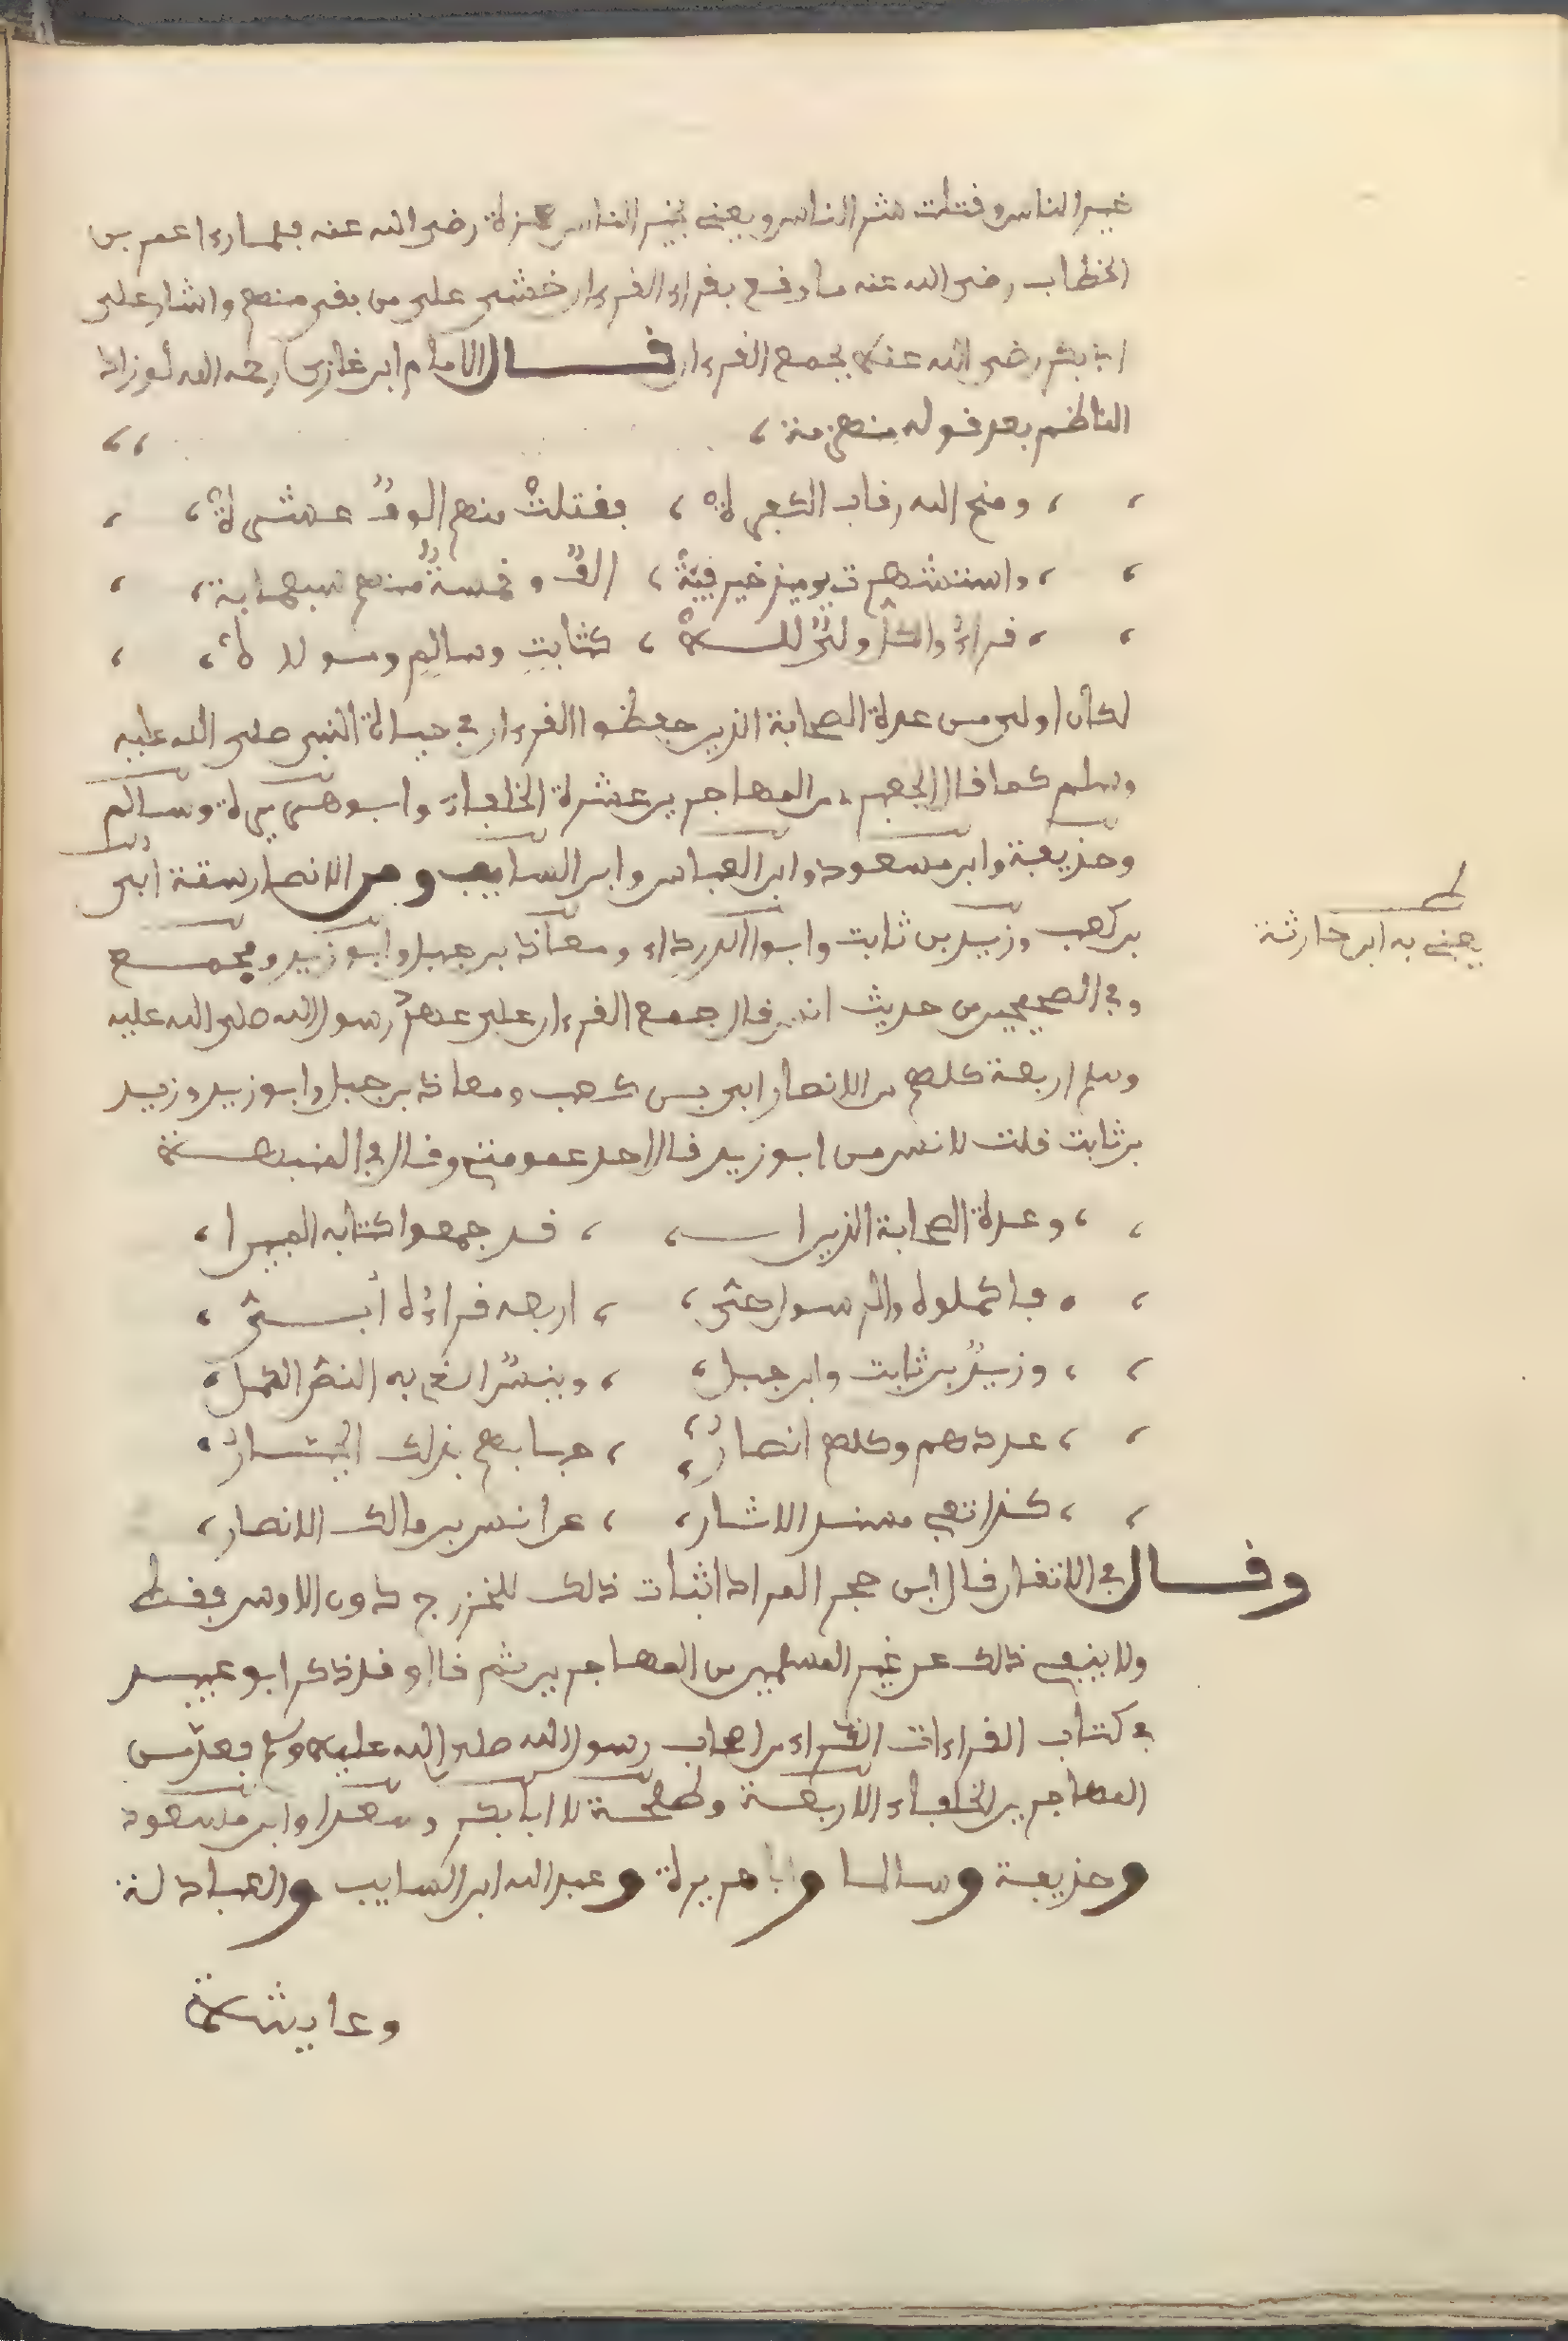 خير الناس وقتلت شر الناس ويعني بخير الناس حمزة رضي الله عنه فلما رءا عمر بن
الخطاب رضي الله عنه ما وقع بقراء القرءان خشي على من بقي منهم واشار على
ابي بكر رضي الله عنه بجمع القرءان قال الامام ابن غازي رحمه الله لو زاد
الناظم بعد قوله منهزمة ،
، ومنح الله رقاب الكفرة ، فقتلت منهم الوف عشرة ،
، واستشهدت يومئذ خير فئة ، الف وخمسة منهم سبعماية ،
، قراء والكل ولي لله ، كثابت وسالم ومولاه ،
لكان اولى من عدة الصحابة الذين حفظوا القرءان في حياة النبي صلى الله عليه
وسلم كما قال الجعبري من المهاجرين عشرة الخلفاء وابو هريرة وسالم
وحذيفة وابن مسعود وابن العباس وابن السايب ومن الانصار ستة ابي
بن كعب وزيد بن ثابت وابو الدرداء ومعاذ بن جبل وابو زيد ومجمع
يعني به ابن حارثة
وفي الصحيحين من حديث انس قال جمع القرءان على عهد رسول الله صلى الله عليه
وسلم اربعة كلهم من الانصار ابي بن كعب ومعاذ بن جبل وابو زيد وزيد
بن ثابت قلت لانس من ابو زيد قال احد عمومتي وقال في المنبهة
، وعدة الصحابة الذينا ، قد جمعوا كتابه المبينا ،
، فاكملوه والرسول حي ، اربعه قراءه أبي ،
، وزيد بن ثابت وابن جبل ،
، عددهم وكلهم انصار ،
، كذا اتى مسند الاثار ، عن انس بن مالك الانصار ،
وقال في الاتقان قال ابن حجر المراد اثبات ذلك للخزرج دون الاوس فقط
ولا ينفي ذلك عن غير المسلمين من المهاجرين ثم قال وقد ذكر ابو عبيد
في كتاب القراءات القراء من اصحاب رسول الله صلى الله عليه وسلم فعد من
المهاجرين الخلفاء الاربعة وطلحة لا ابا بكر وسعدا وابن مسعود
وحذيفة وسالما وابا هريرة وعبد الله ابن السايب والعبادلة
وعايشة